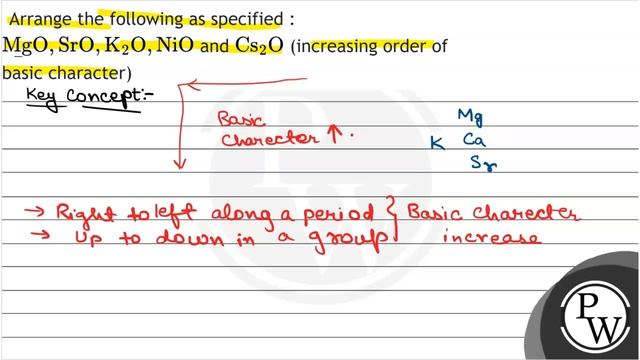 Arrange the following as specified :
MgO, SrO, K₂O, NiO and Cs₂O (increasing order of
basic character)
Key Concept:-
Basic
Charecter ↑.
Mg
K Ca
Sr
→ Right to left along a period } Basic charecter
→ Up to down in a group } increase
PW
PW